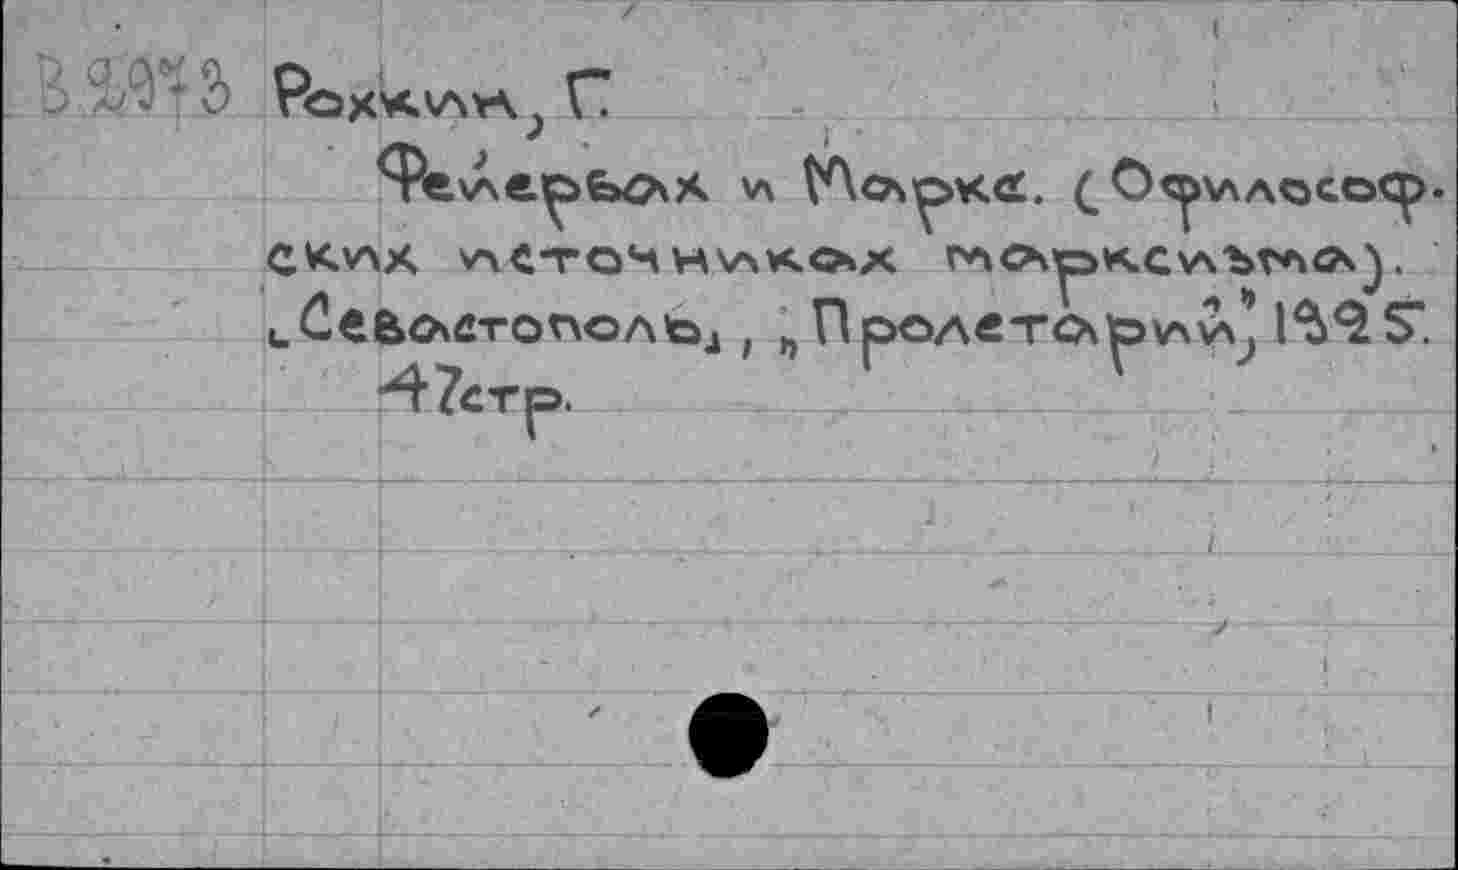 Рохкин, Г.
Фейербах и Маркс. (О философ.
ских источниках марксизма).
[Севастополь], „Пролетарий", 1925.
47стр.